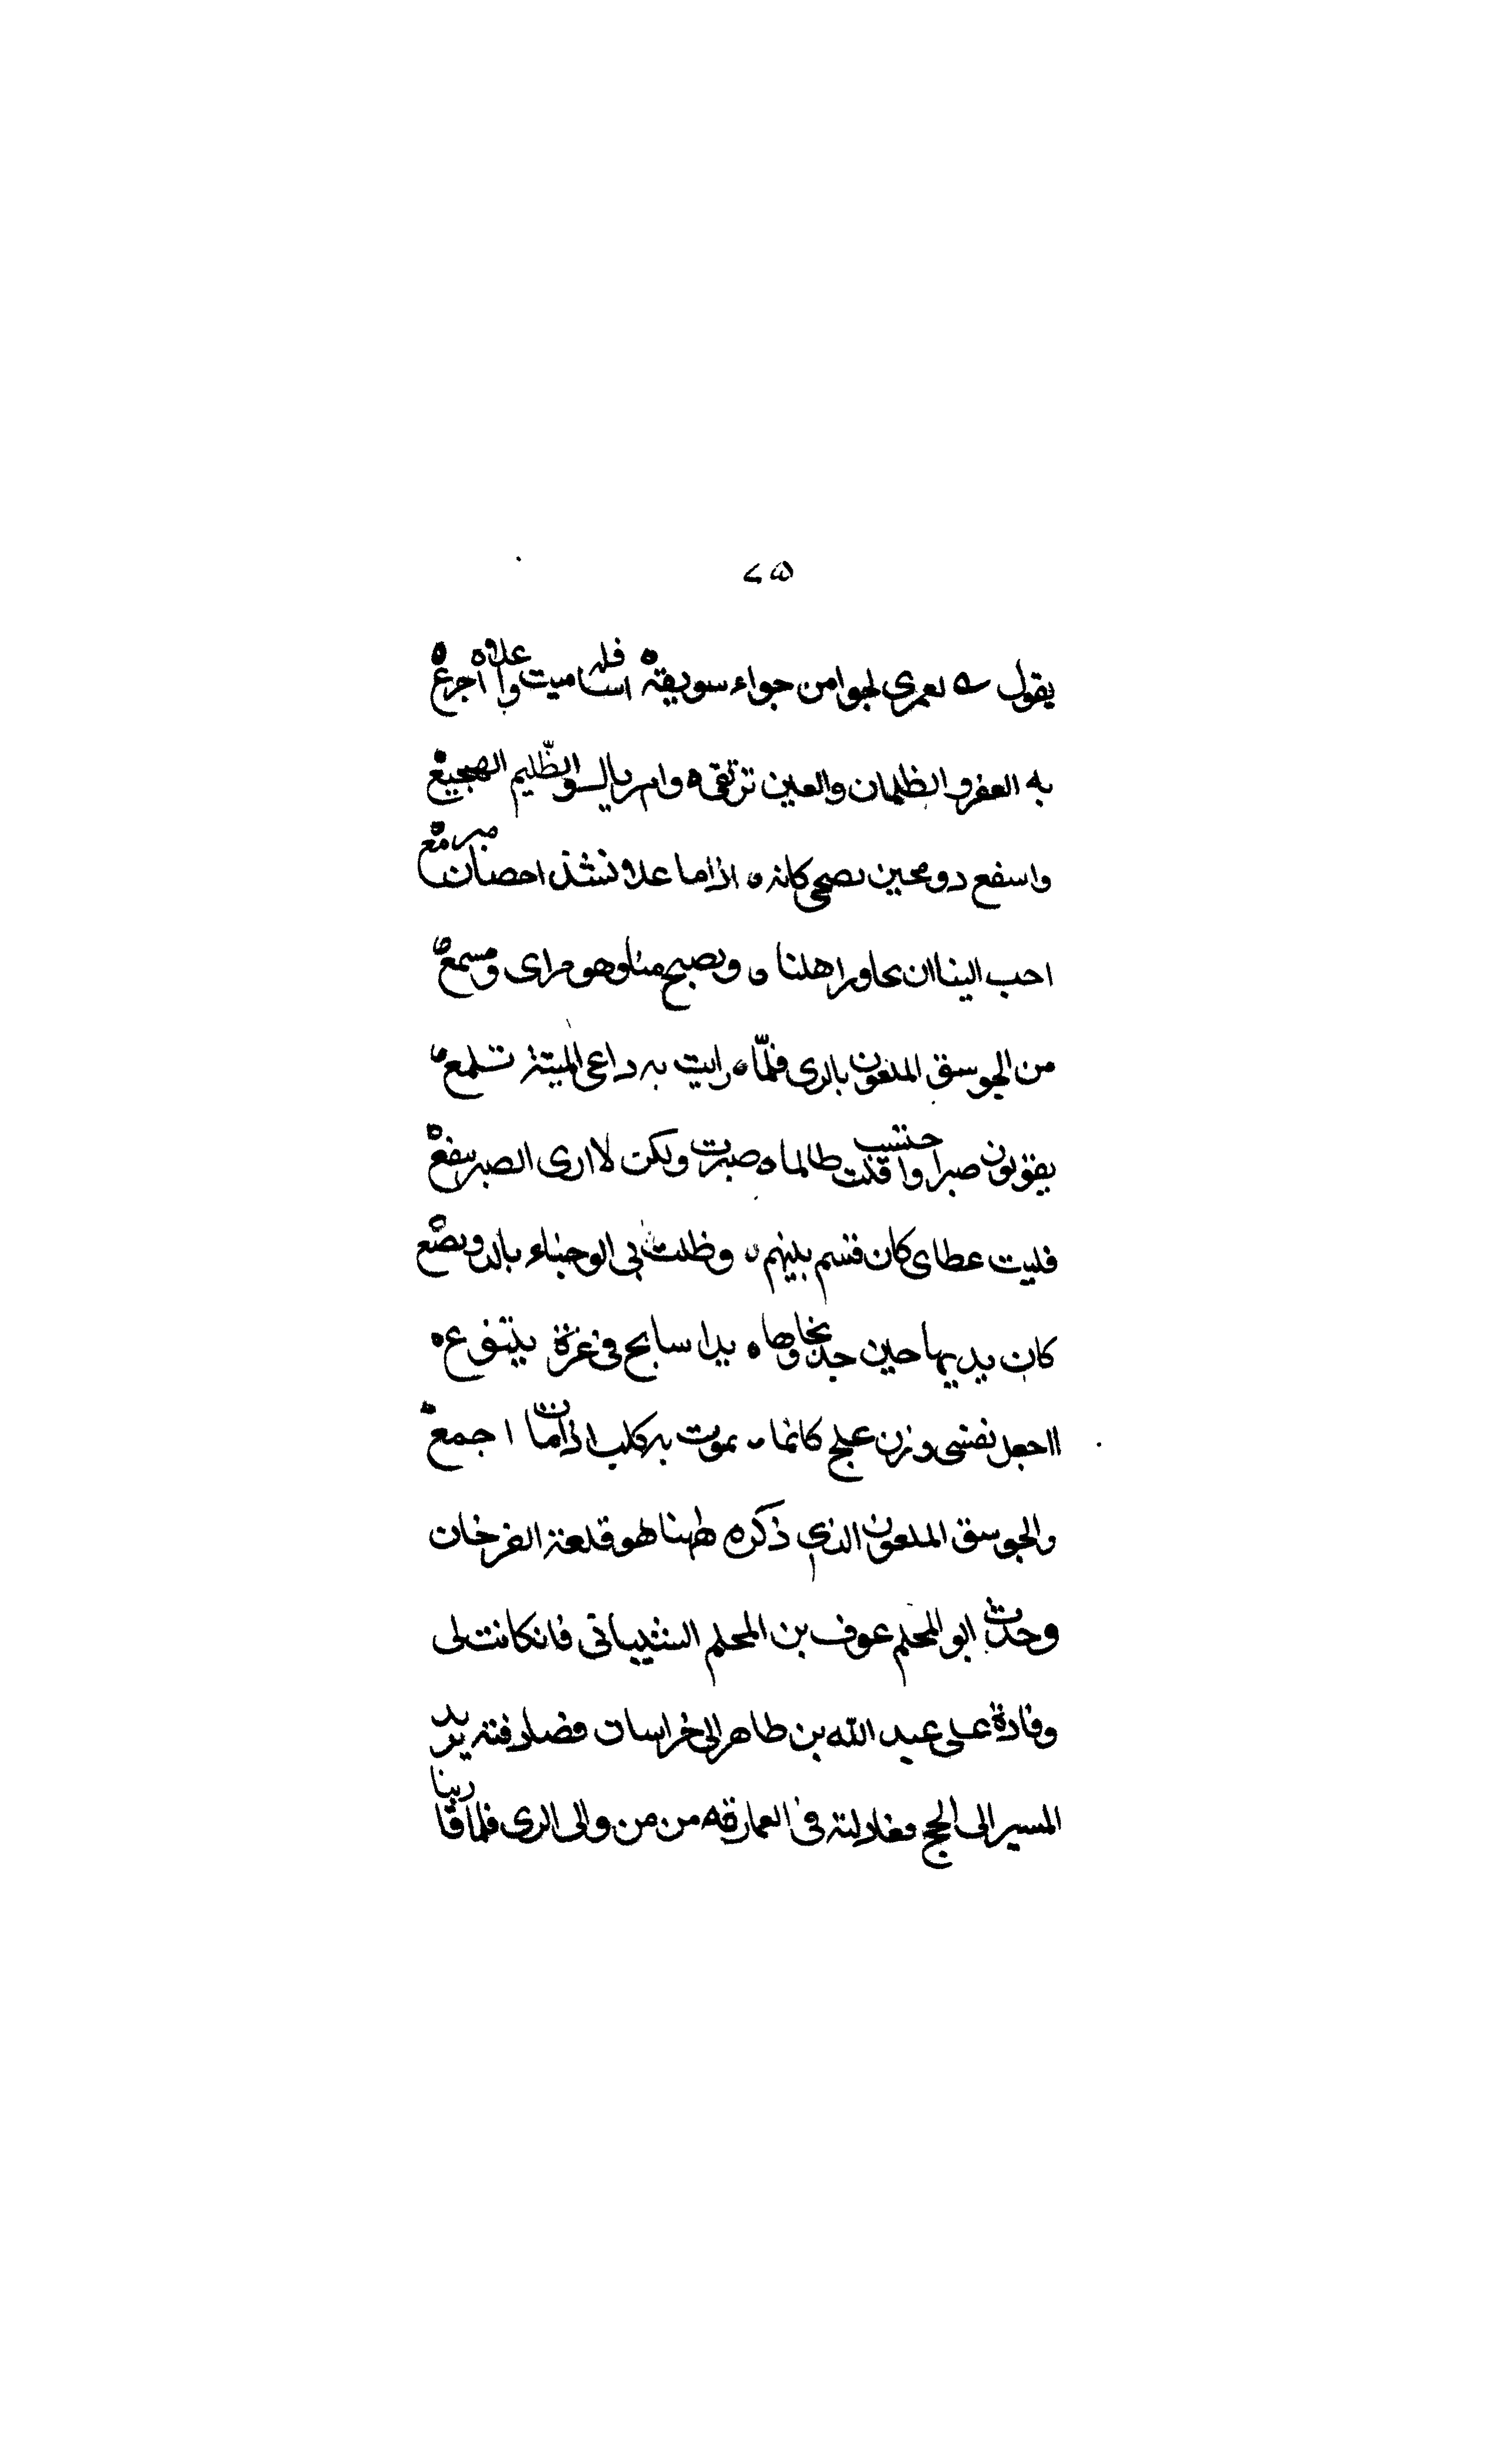 ٧٥
يقول لعمرى لجوا من جواء سويقة اسافله ميت واعلاه اجرع
به العفر والظلمان والعين ترتقى وام ريال والظليم الهجيع
واسفع دو محين يصحى كانه اذا ما علا نشذ احصان مبرمع
احب الينا ان يحاور اهلنا ويصبح منا وهو مراى ومسمع
من الجوسق الملعون بالرى فلمّا رايت به داعى الميتة تسلمع
يقولون صبرا واحتسب قلت طالما صبرت ولكن لا ارى الصبر ينفع
فليت عطاى كان قسم بينهم وظلت بى الوجناء بالدو بضع
كان يديها حين جد نجاوها يدا سابح فى غرة يتبوع
ااجعل نفسى وزن علج كانما يموت به كلب اذا مات اجمع
والجوسق الملعون الذى ذكره ههنا هو قلعة الفرخان
وحدث ابو المحلم عوف بن المحلم الشيبانى قال كانت لى
وفادة على عبد الله بن طاهر الى خراسان فصادفته يريد
المسير الى الحج فعادلته فى العمارقه من من والى الرى فلما قاربنا